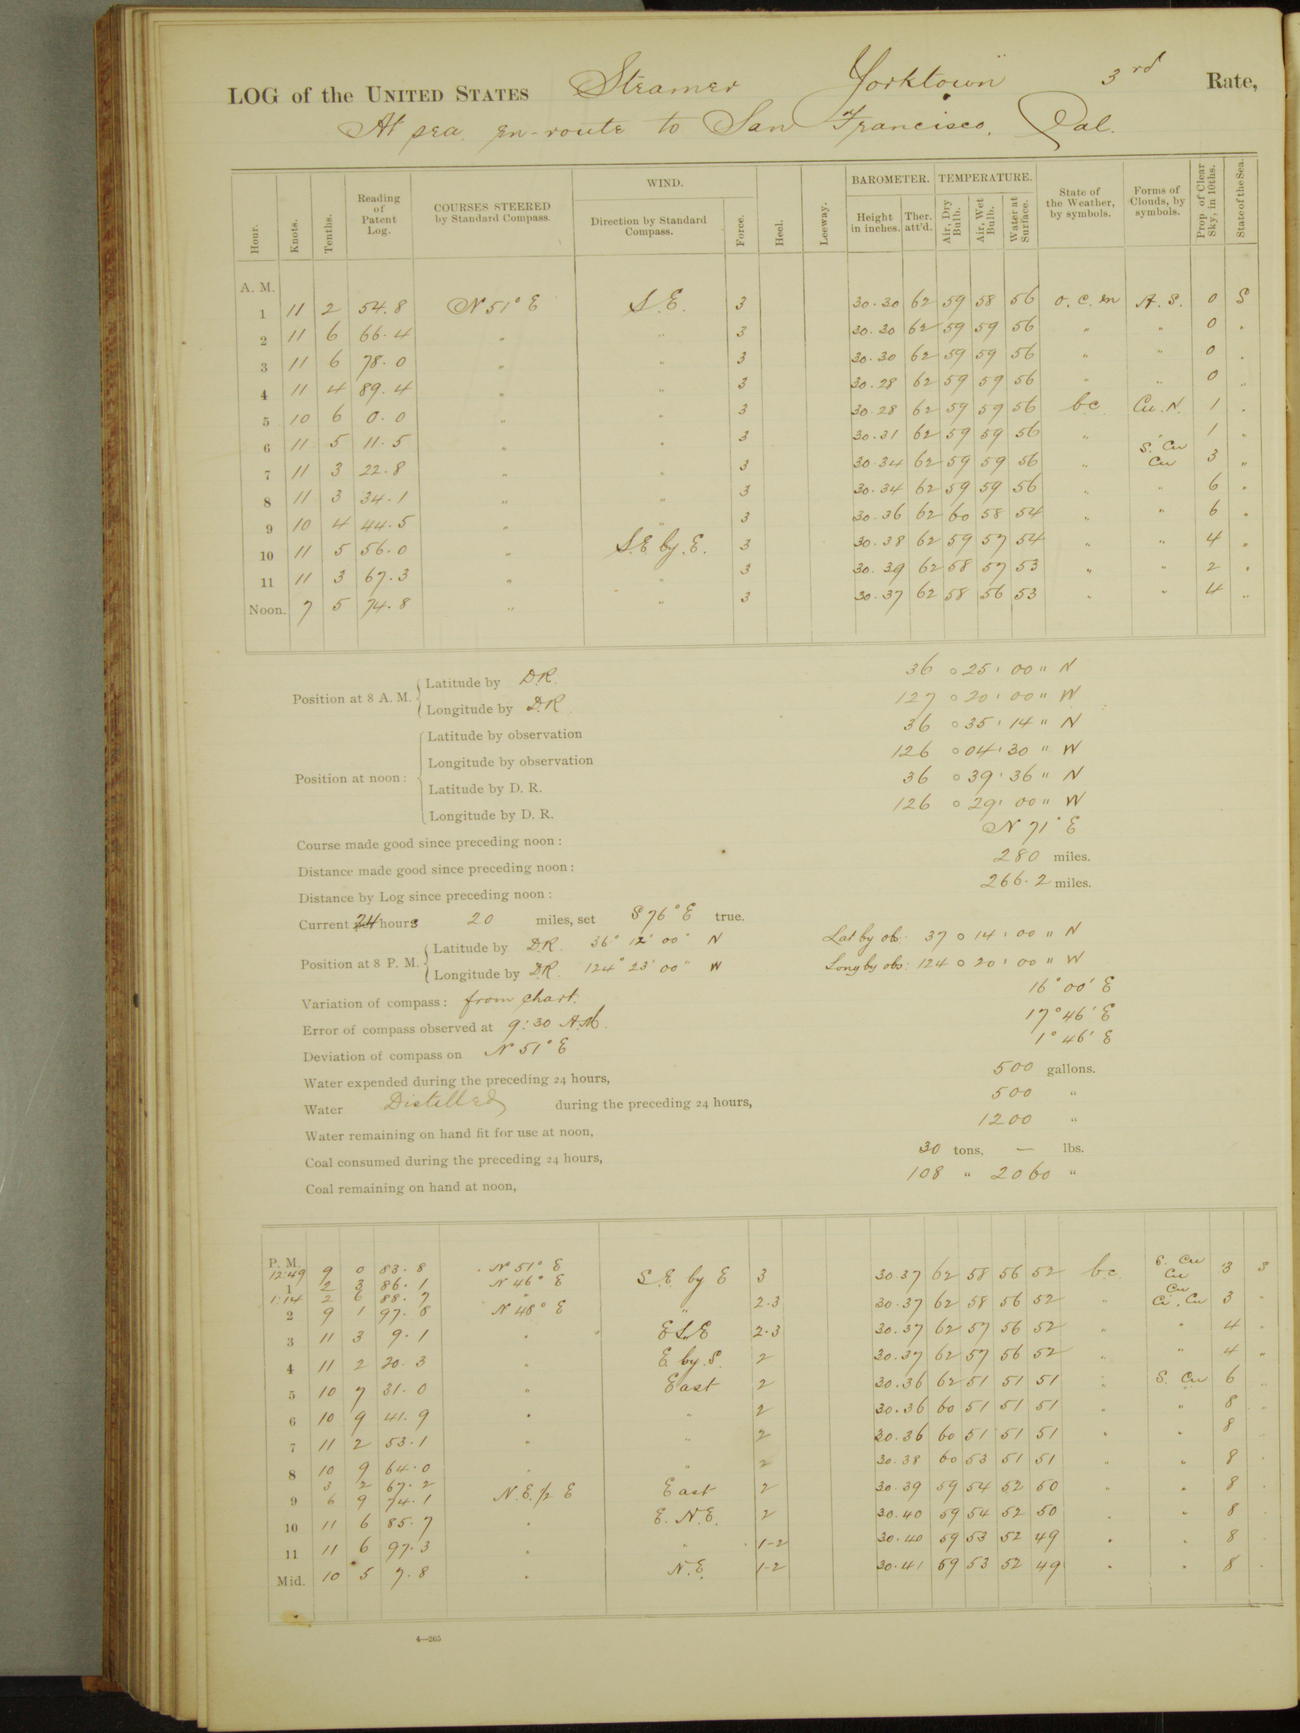 LOG of the UNITED STATES Steamer Yorktown 3rd Rate,
At sea en-route to San Francisco, Cal.
Hour. Knots. Tenths. Reading of Patent Log. COURSES STEERED by Standard Compass. WIND. Direction by Standard Compass. Force. Heel. Leeway. BAROMETER. Height in inches. Ther. att'd. TEMPERATURE. Air, Dry Bulb. Air, Wet Bulb. Water at Surface. State of the Weather, by symbols. Forms of Clouds, by symbols. Prop. of Clear Sky, in 10ths. State of the Sea.
A. M.
1 11 2 54.8 N 51° E S.E. 3 30.30 62 59 58 56 o.c.m A.S. 0 S
2 11 6 66.4 " " 3 30.30 62 59 59 56 " " 0 "
3 11 6 78.0 " " 3 30.30 62 59 59 56 " " 0 "
4 11 4 89.4 " " 3 30.28 62 59 59 56 " " 0 "
5 10 6 0.0 " " 3 30.28 62 59 59 56 bc Cu.N. 1 "
6 11 5 11.5 " " 3 30.31 62 59 59 56 " " 1 "
7 11 3 22.8 " " 3 30.34 62 59 59 56 " S.Cu Cu 3 "
8 11 3 34.1 " " 3 30.34 62 59 59 56 " " 6 "
9 10 4 44.5 " " 3 30.36 62 60 58 54 " " 6 "
10 11 5 56.0 " S.E by E. 3 30.38 62 59 57 54 " " 4 "
11 11 3 67.3 " " 3 30.39 62 58 57 53 " " 2 "
Noon. 7 5 74.8 " " 3 30.37 62 58 56 53 " " 4 "
Position at 8 A. M. Latitude by D.R. 36 ° 25 ' 00 " N
Longitude by D.R. 127 ° 20 ' 00 " W
Position at noon: Latitude by observation 36 ° 35 ' 14 " N
Longitude by observation 126 ° 04 ' 30 " W
Latitude by D. R. 36 ° 39 ' 36 " N
Longitude by D. R. 126 ° 29 ' 00 " W
Course made good since preceding noon: N 71° E
Distance made good since preceding noon: 280 miles.
Distance by Log since preceding noon: 266.2 miles.
Current 24 hours 20 miles, set S 76° E true.
Position at 8 P. M. Latitude by D.R. 36° 12' 00" N Lat by obs: 37 ° 14 ' 00 " N
Longitude by D.R. 124° 23' 00" W Long by obs: 124 ° 20 ' 00 " W
Variation of compass: from chart. 16° 00' E
Error of compass observed at 9:30 A.M. 17° 46' E
Deviation of compass on N 51° E 1° 46' E
Water expended during the preceding 24 hours, 500 gallons.
Water Distilled during the preceding 24 hours, 500 "
Water remaining on hand fit for use at noon, 1200 "
Coal consumed during the preceding 24 hours, 30 tons, — lbs.
Coal remaining on hand at noon, 108 " 2060 "
P. M.
12:49 9 0 83.8 N 51° E
1 2 3 86.1 N 46° E S.E by E 3 30.37 62 58 56 52 bc S.Cu Cu 3 S
1:14 2 6 88.7 "
2 9 1 97.8 N 48° E " 2.3 30.37 62 58 56 52 " Cu Ci.Cu 3 "
3 11 3 9.1 " E S.E 2.3 30.37 62 57 56 52 " " 4 "
4 11 2 20.3 " E by S. 2 30.37 62 57 56 52 " " 4 "
5 10 7 31.0 " East 2 30.36 62 51 51 51 " S.Cu 6 "
6 10 9 41.9 " " 2 30.36 60 51 51 51 " " 8 "
7 11 2 53.1 " " 2 30.36 60 51 51 51 " " 8 "
8 10 9 64.0 " " 2 30.38 60 53 51 51 " " 8 "
3 2 67.2
9 6 9 74.1 N.E. ½ E East 2 30.39 59 54 52 50 " " 8 "
10 11 6 85.7 " E.N.E. 2 30.40 59 54 52 50 " " 8 "
11 11 6 97.3 " " 1-2 30.40 59 53 52 49 " " 8 "
Mid. 10 5 7.8 " N.E. 1-2 30.41 59 53 52 49 " " 8 "
4—265